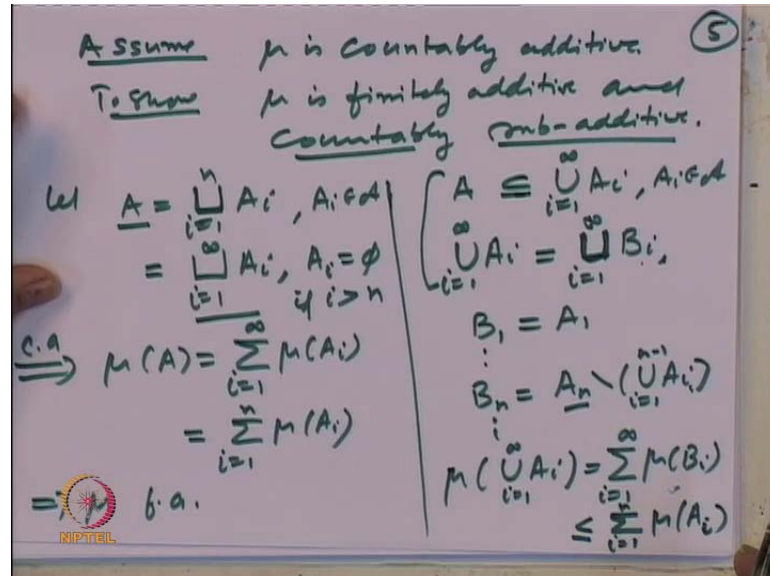 5
Assume μ is countably additive.
To show μ is finitely additive and
countably sub-additive.
Let A = ⊔_{i=1}^{n} A_i , A_i ∈ 𝒜
= ⊔_{i=1}^{∞} A_i, A_i = ϕ
if i > n
c.a ⟹ μ(A) = ∑_{i=1}^{∞} μ(A_i)
= ∑_{i=1}^{n} μ(A_i)
⟹ μ f.a.
A ⊆ ∪_{i=1}^{∞} A_i, A_i ∈ 𝒜
∪_{i=1}^{∞} A_i = ⊔_{i=1}^{∞} B_i,
B_1 = A_1
⋮
B_n = A_n ∖ (∪_{i=1}^{n-1} A_i)
⋮
μ(∪_{i=1}^{∞} A_i) = ∑_{i=1}^{∞} μ(B_i)
≤ ∑_{i=1}^{n} μ(A_i)
NPTEL